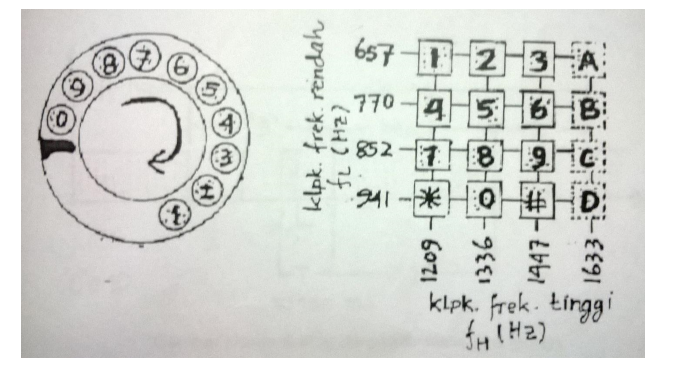 0 9 8 7 6 5 4 3 2 1
klpk. frek. rendah
fL (Hz)
657 1 2 3 A
770 4 5 6 B
852 7 8 9 C
941 * 0 # D
1209 1336 1447 1633
klpk. frek. tinggi
fH (Hz)